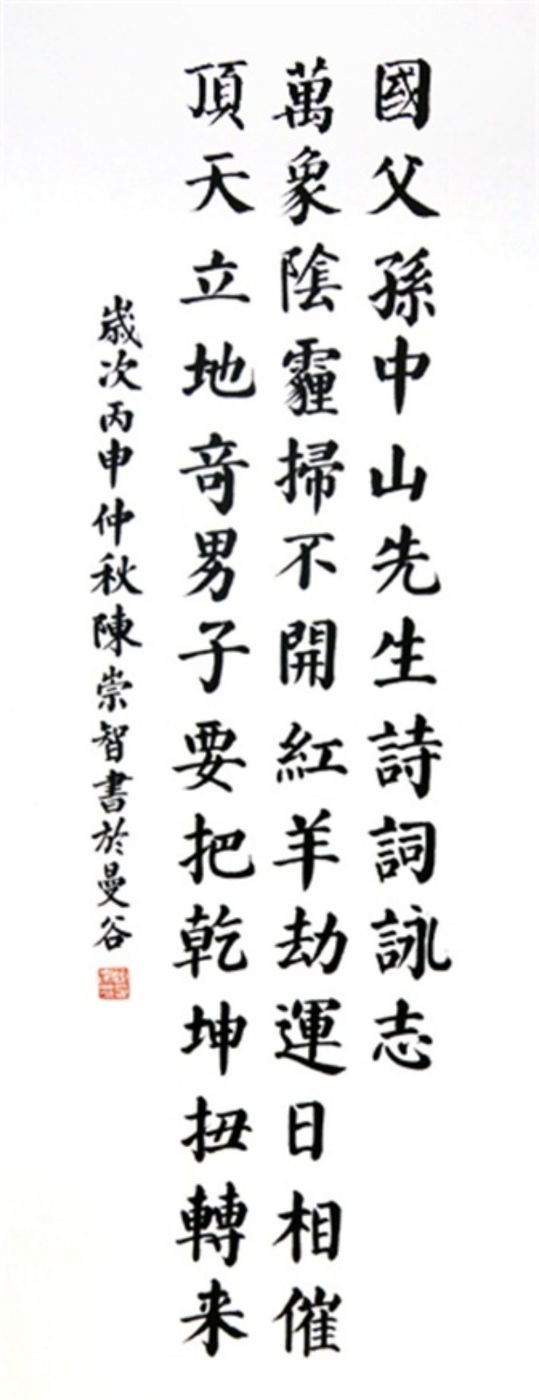 國父孫中山先生詩詞詠志
萬象陰霾掃不開紅羊劫運日相催
頂天立地奇男子要把乾坤扭轉来
歲次丙申仲秋陳崇智書於曼谷